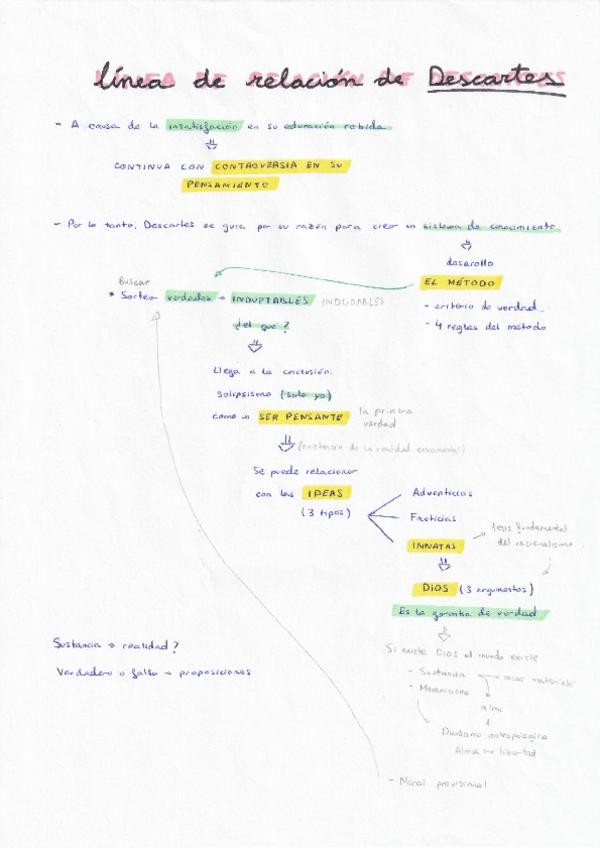 línea de relación de Descartes
- A causa de la insatisfación en su educación rebida
CONTINUA CON CONTROVERSIA EN SU
PENSAMIENTO
- Por lo tanto, Descartes se guia por su razón para crear un sistema de conocimiento
desarollo
EL MÉTODO
- criterio de verdad.
- 4 reglas del método
Buscar
verdades → INDUPTABLES INDUDABLES
¿el qué?
Llega a la conclusión:
Solipsismo (solo yo)
como un SER PENSANTE la primera
verdad
(existencia de la realidad extramental)
Se puede relacionar
con las IDEAS
(3 tipos)
Adventicias
Facticias
INNATAS
tesis fundamental
del racionalismo
DIOS (3 argumentos)
Es la garantía de verdad
Si existe Dios el mundo existe
- Sustancia → cosas materiales
- Mecanicismo
alma
Dualismo antropológico
Alma libertad
- Moral provisional
Sustancia → realidad?
Verdadero o falso → proposiciones